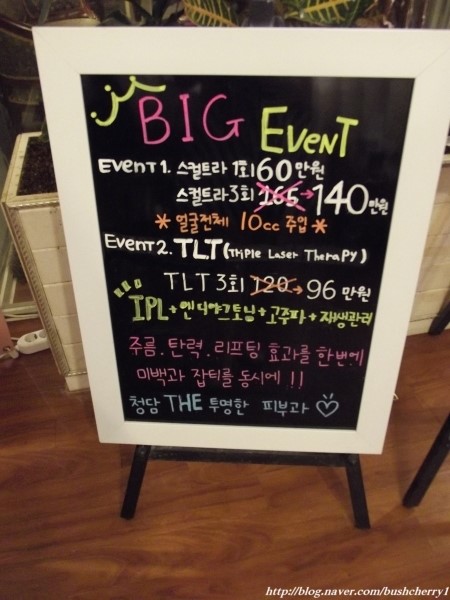 BIG EVENT
EVENT 1. 스컬트라 1회 60만원
스컬트라 3회 165 → 140만원
* 얼굴전체 10cc 주입 *
EVENT 2. TLT (Triple Laser Therapy)
TLT 3회 120 → 96 만원
IPL + 엔디야그토닝 + 고주파 + 재생관리
주름. 탄력. 리프팅 효과를 한번에
미백과 잡티를 동시에 !!
청담 THE 투명한 피부과 ♡
http://blog.naver.com/bushcherry1